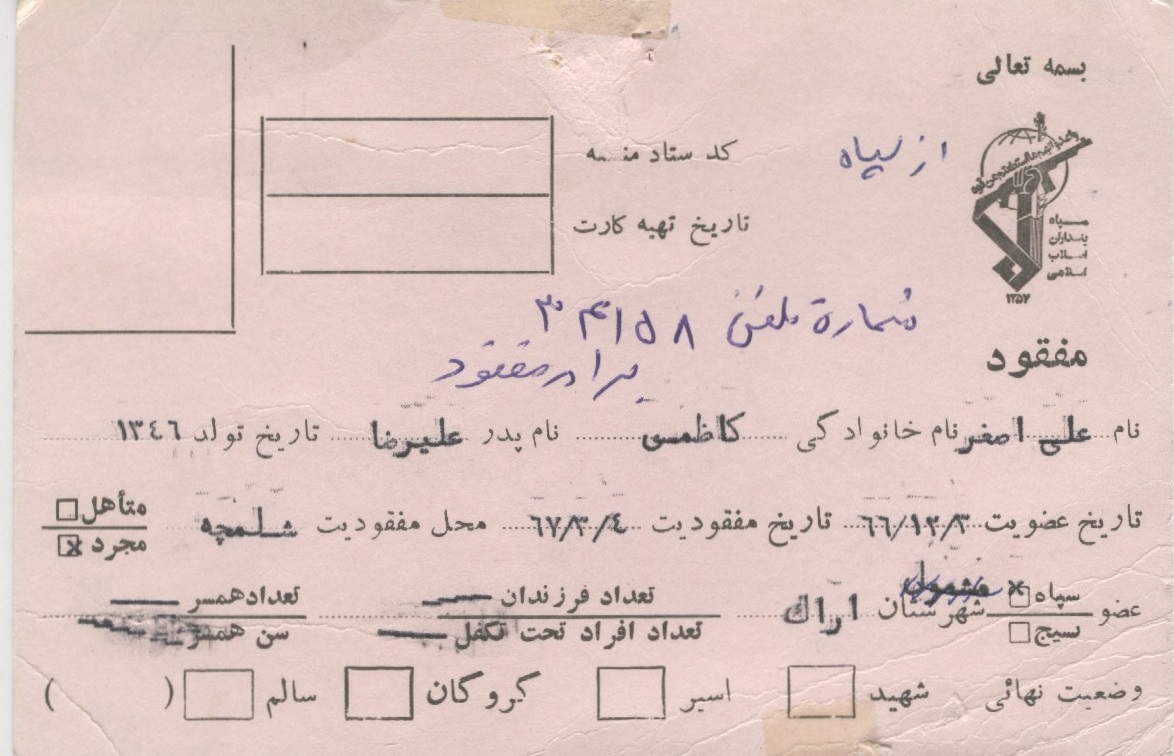 بسمه تعالی
از سپاه
کد ستاد
تاریخ تهیه کارت
سپاه
پاسداران
انقلاب
اسلامی
۱۳۵۷
شماره تلفن ۳۴۱۵۸
برادر مفقود
مفقود
نام علی اصغر نام خانوادگی کاظمی نام پدر علیرضا تاریخ تولد ۱۳٤٦
تاریخ عضویت ٦٦/۱۲/۳ تاریخ مفقودیت ٦٧/۳/٤ محل مفقودیت شلمچه
متأهل
مجرد x
عضو سپاه x مشمول شهرستان اراك تعداد فرزندان — تعداد همسر —
بسیج تعداد افراد تحت تکفل — سن همسر
وضعیت نهائی شهید اسیر گروگان سالم ( )